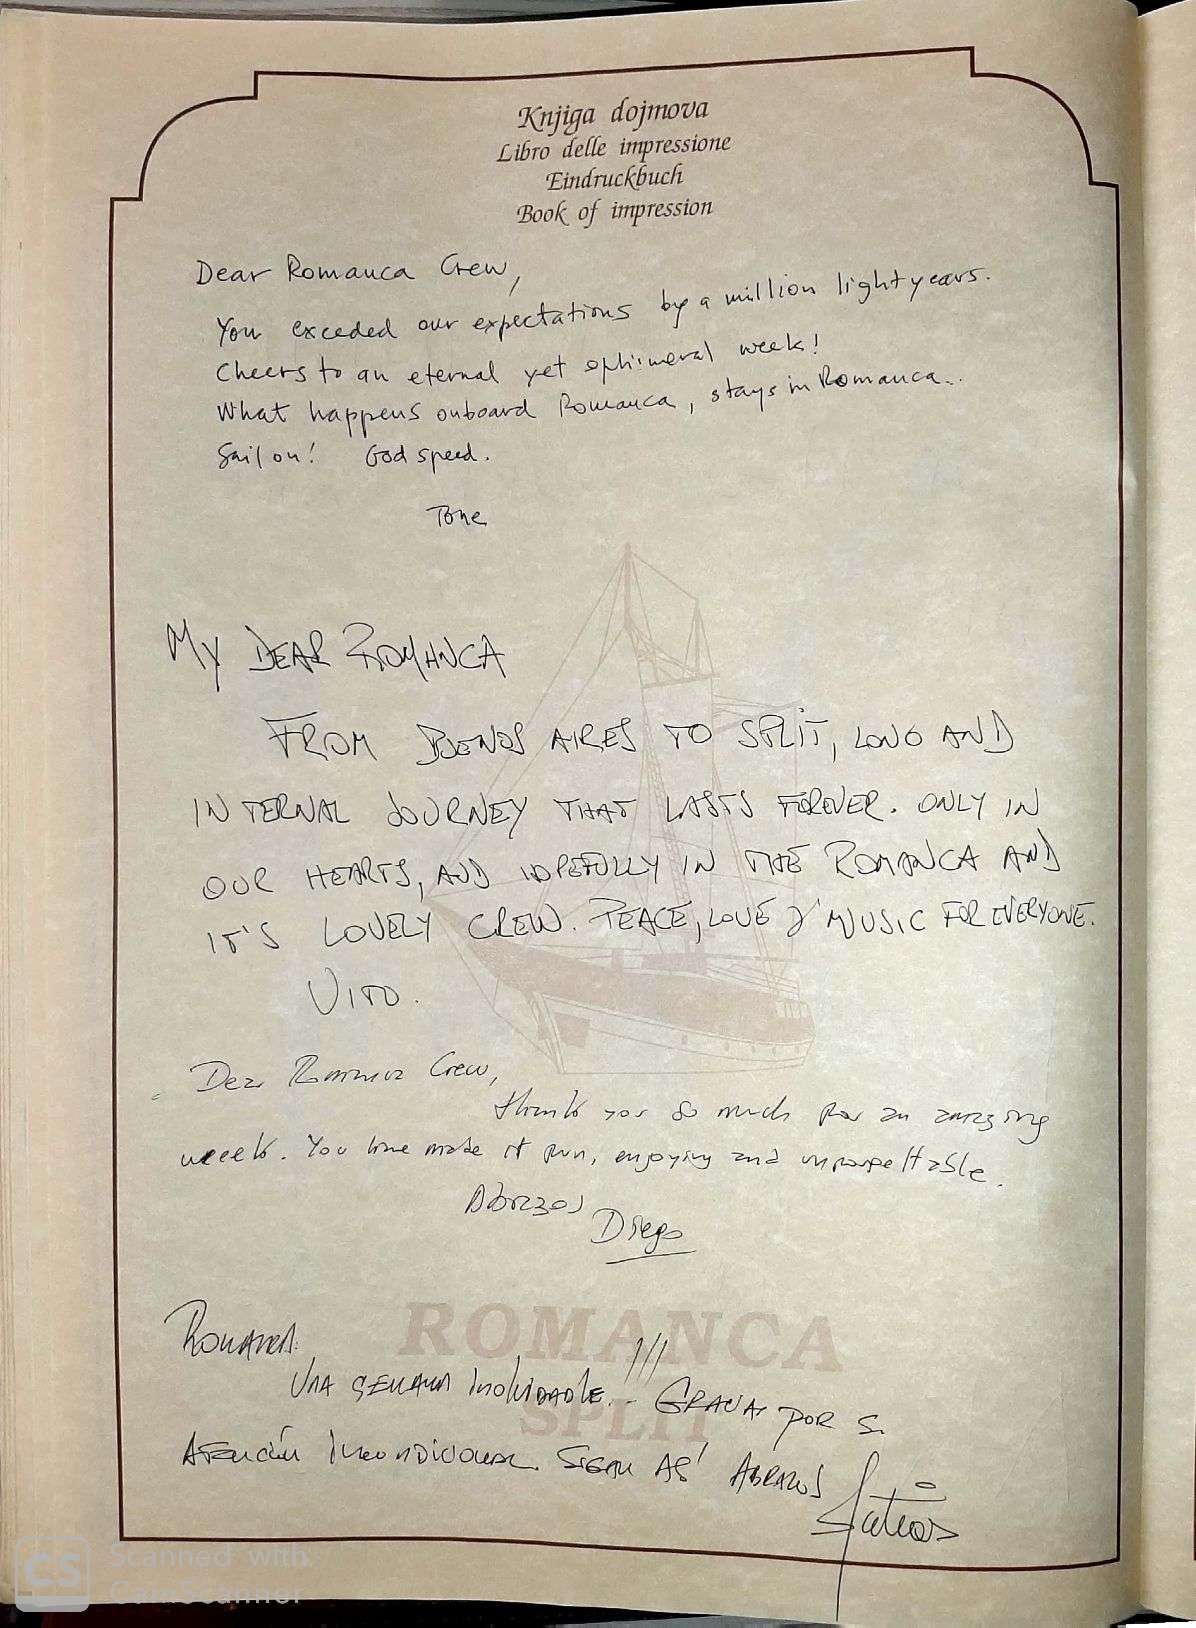 Knjiga dojmova
Libro delle impressione
Eindruckbuch
Book of impression
Dear Romanca Crew,
You exceded our expectations by a million lightyears.
Cheers to an eternal yet ephimeral week!
What happens onboard Romanca, stays in Romanca..
Sail on! God speed.
Tone
MY DEAR ROMANCA
FROM BUENOS AIRES TO SPLIT, LONG AND
INTERNAL JOURNEY THAT LASTS FOREVER. ONLY IN
OUR HEARTS, AND HOPEFULLY IN THE ROMANCA AND
IT'S LOVELY CREW. PEACE, LOVE & MUSIC FOR EVERYONE.
VITO.
Dear Romanca Crew,
thank you so much for an amazing
week. You have made it fun, enjoying and unforgettable.
Abrazos
Diego
ROMANCA
SPLIT
Romanca:
Una semana inolvidable.!!! Gracias por su
Atención incondicional. Sigan así Abrazos
CS Scanned with
CamScanner